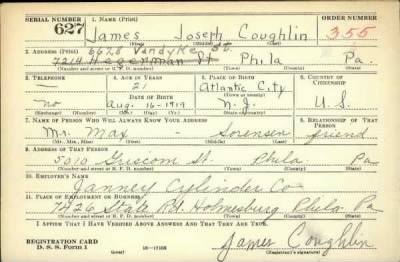 SERIAL NUMBER 1. NAME (Print) ORDER NUMBER
627 James Joseph Coughlin 355
(First) (Middle) (Last)
6628 Vandyke St.
2. ADDRESS (Print)
7214 Hegerman St Phila Pa.
(Number and street or R. F. D. number) (Town) (County) (State)
3. TELEPHONE 4. AGE IN YEARS 5. PLACE OF BIRTH 6. COUNTRY OF CITIZENSHIP
— 21 Atlantic City
DATE OF BIRTH (Town or county)
no Aug. 16-1919 N. J. U. S.
(Exchange) (Number) (Mo.) (Day) (Yr.) (State or country)
7. NAME OF PERSON WHO WILL ALWAYS KNOW YOUR ADDRESS 8. RELATIONSHIP OF THAT PERSON
Mr. Max — Sorensen friend
(Mr., Mrs., Miss) (First) (Middle) (Last)
9. ADDRESS OF THAT PERSON
5010 Griscom St. Phila Pa
(Number and street or R. F. D. number) (Town) (County) (State)
10. EMPLOYER'S NAME
Janney Cylinder Co
11. PLACE OF EMPLOYMENT OR BUSINESS
7426 State Rd. Holmesburg Phila Pa
(Number and street or R. F. D. number) (Town) (County) (State)
I AFFIRM THAT I HAVE VERIFIED ABOVE ANSWERS AND THAT THEY ARE TRUE.
REGISTRATION CARD
D. S. S. Form 1 (over) James Coughlin
(Registrant's signature)